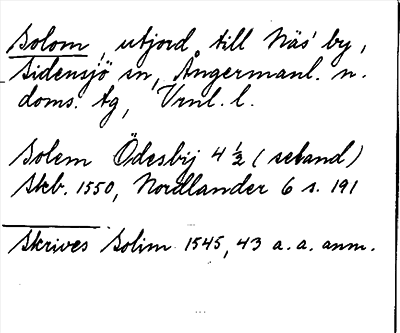 Solom, utjord till Näs' by,
Sidensjö sn, Ångermanl. n.
doms. tg, Vrnl. l.
Solem Ödesbij 4 ½ (seland)
Skb. 1550, Nordlander 6 s. 191
Skrives Solim 1545, 43 a. a. anm.